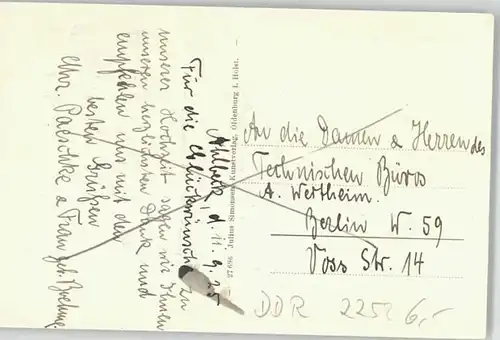 Ahlbeck, d. 11.9.25
Für die Glückwünsche zu
unserer Hochzeit sagen wir Ihnen
unseren herzlichsten Dank und
empfehlen uns mit den
besten Grüßen
Chr. Paeschke u. Frau geb. Brehme.
27696 Julius Simonsen, Kunstverlag, Oldenburg i. Holst.
An die Damen & Herren des
Technischen Büros
A. Wertheim.
Berlin W. 59
Voss Str. 14
DDR 2252 6,-